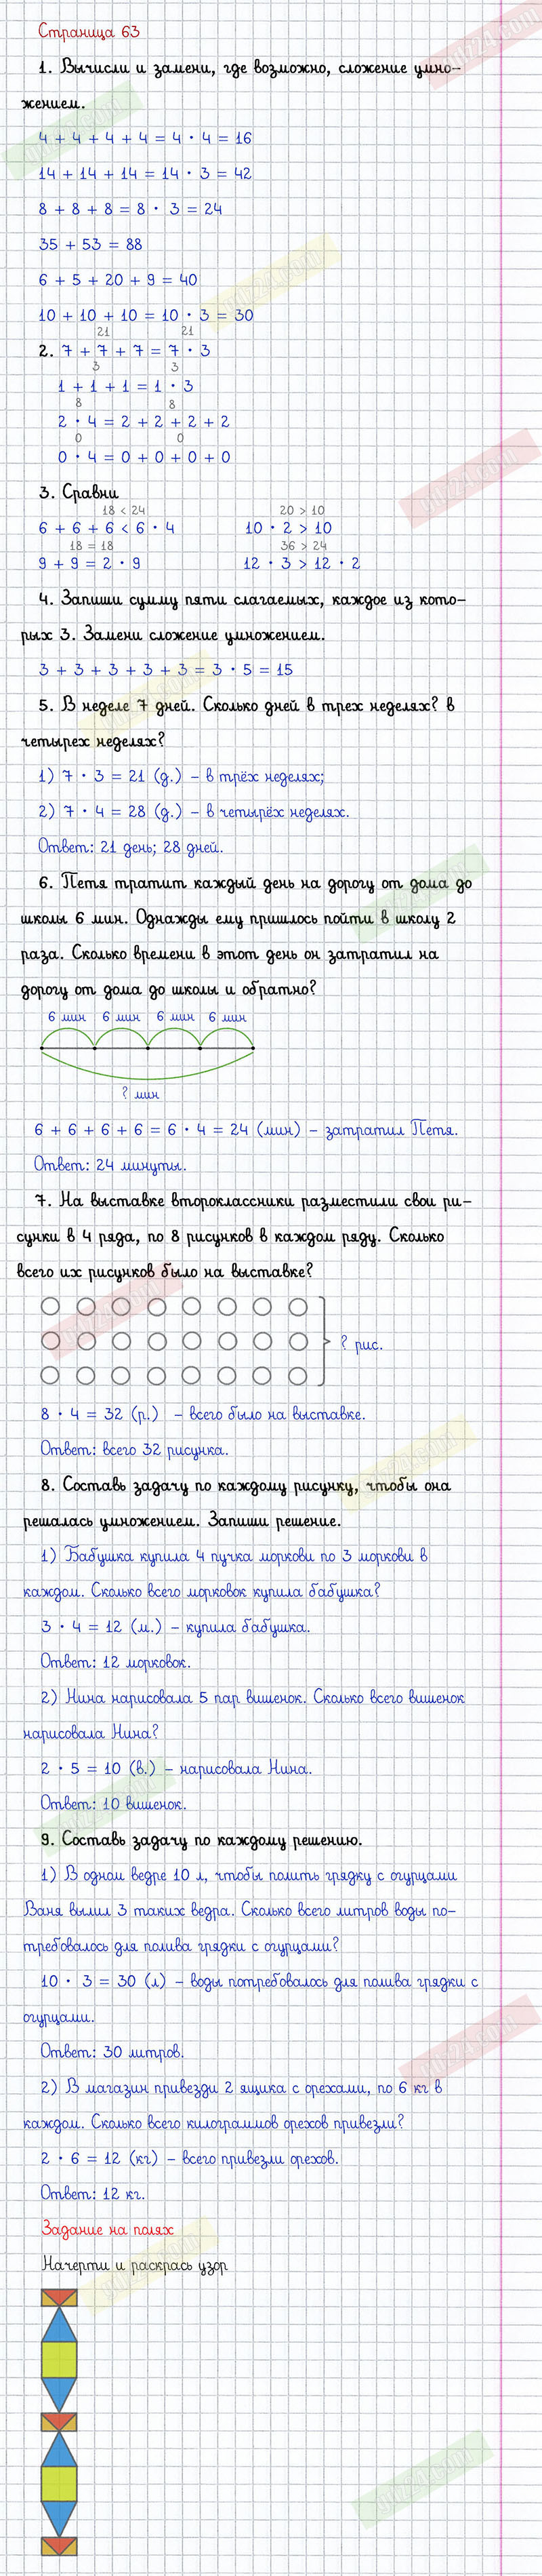 Страница 63
1. Вычисли и замени, где возможно, сложение умно-
жением.
4 + 4 + 4 + 4 = 4 · 4 = 16
14 + 14 + 14 = 14 · 3 = 42
8 + 8 + 8 = 8 · 3 = 24
35 + 53 = 88
6 + 5 + 20 + 9 = 40
10 + 10 + 10 = 10 · 3 = 30
21 21
2. 7 + 7 + 7 = 7 · 3
3 3
1 + 1 + 1 = 1 · 3
8 8
2 · 4 = 2 + 2 + 2 + 2
0 0
0 · 4 = 0 + 0 + 0 + 0
3. Сравни
18 < 24 20 > 10
6 + 6 + 6 < 6 · 4 10 · 2 > 10
18 = 18 36 > 24
9 + 9 = 2 · 9 12 · 3 > 12 · 2
4. Запиши сумму пяти слагаемых, каждое из кото-
рых 3. Замени сложение умножением.
3 + 3 + 3 + 3 + 3 = 3 · 5 = 15
5. В неделе 7 дней. Сколько дней в трех неделях? в
четырех неделях?
1) 7 · 3 = 21 (д.) – в трёх неделях;
2) 7 · 4 = 28 (д.) – в четырёх неделях.
Ответ: 21 день; 28 дней.
6. Петя тратит каждый день на дорогу от дома до
школы 6 мин. Однажды ему пришлось пойти в школу 2
раза. Сколько времени в этот день он затратил на
дорогу от дома до школы и обратно?
6 мин 6 мин 6 мин 6 мин
? мин
6 + 6 + 6 + 6 = 6 · 4 = 24 (мин) – затратил Петя.
Ответ: 24 минуты.
7. На выставке второклассники разместили свои ри-
сунки в 4 ряда, по 8 рисунков в каждом ряду. Сколько
всего их рисунков было на выставке?
? рис.
8 · 4 = 32 (р.) – всего было на выставке.
Ответ: всего 32 рисунка.
8. Составь задачу по каждому рисунку, чтобы она
решалась умножением. Запиши решение.
1) Бабушка купила 4 пучка моркови по 3 моркови в
каждом. Сколько всего морковок купила бабушка?
3 · 4 = 12 (м.) – купила бабушка.
Ответ: 12 морковок.
2) Нина нарисовала 5 пар вишенок. Сколько всего вишенок
нарисовала Нина?
2 · 5 = 10 (в.) – нарисовала Нина.
Ответ: 10 вишенок.
9. Составь задачу по каждому решению.
1) В одном ведре 10 л, чтобы полить грядку с огурцами
Ваня вылил 3 таких ведра. Сколько всего литров воды по-
требовалось для полива грядки с огурцами?
10 · 3 = 30 (л) – воды потребовалось для полива грядки с
огурцами.
Ответ: 30 литров.
2) В магазин привезди 2 ящика с орехами, по 6 кг в
каждом. Сколько всего килограммов орехов привезли?
2 · 6 = 12 (кг) – всего привезли орехов.
Ответ: 12 кг.
Задание на полях
Начерти и раскрась узор